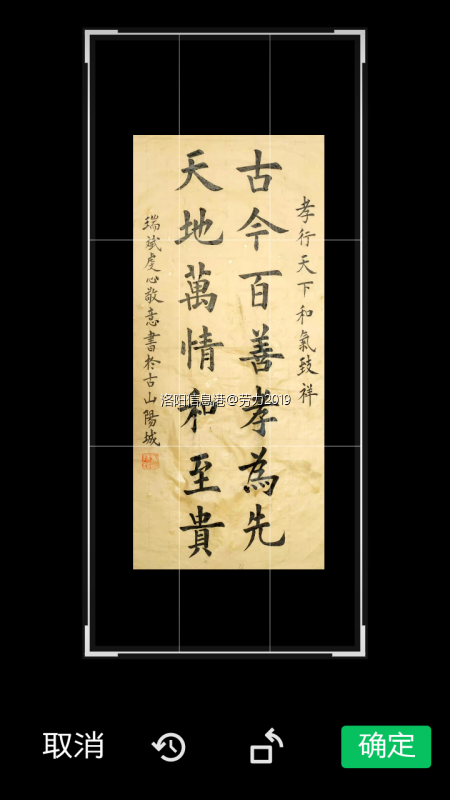 孝行天下和氣致祥
古今百善孝為先
天地萬情和至貴
瑞斌虔心敬意書於古山陽城
洛阳信息港@劳力2019
取消
确定